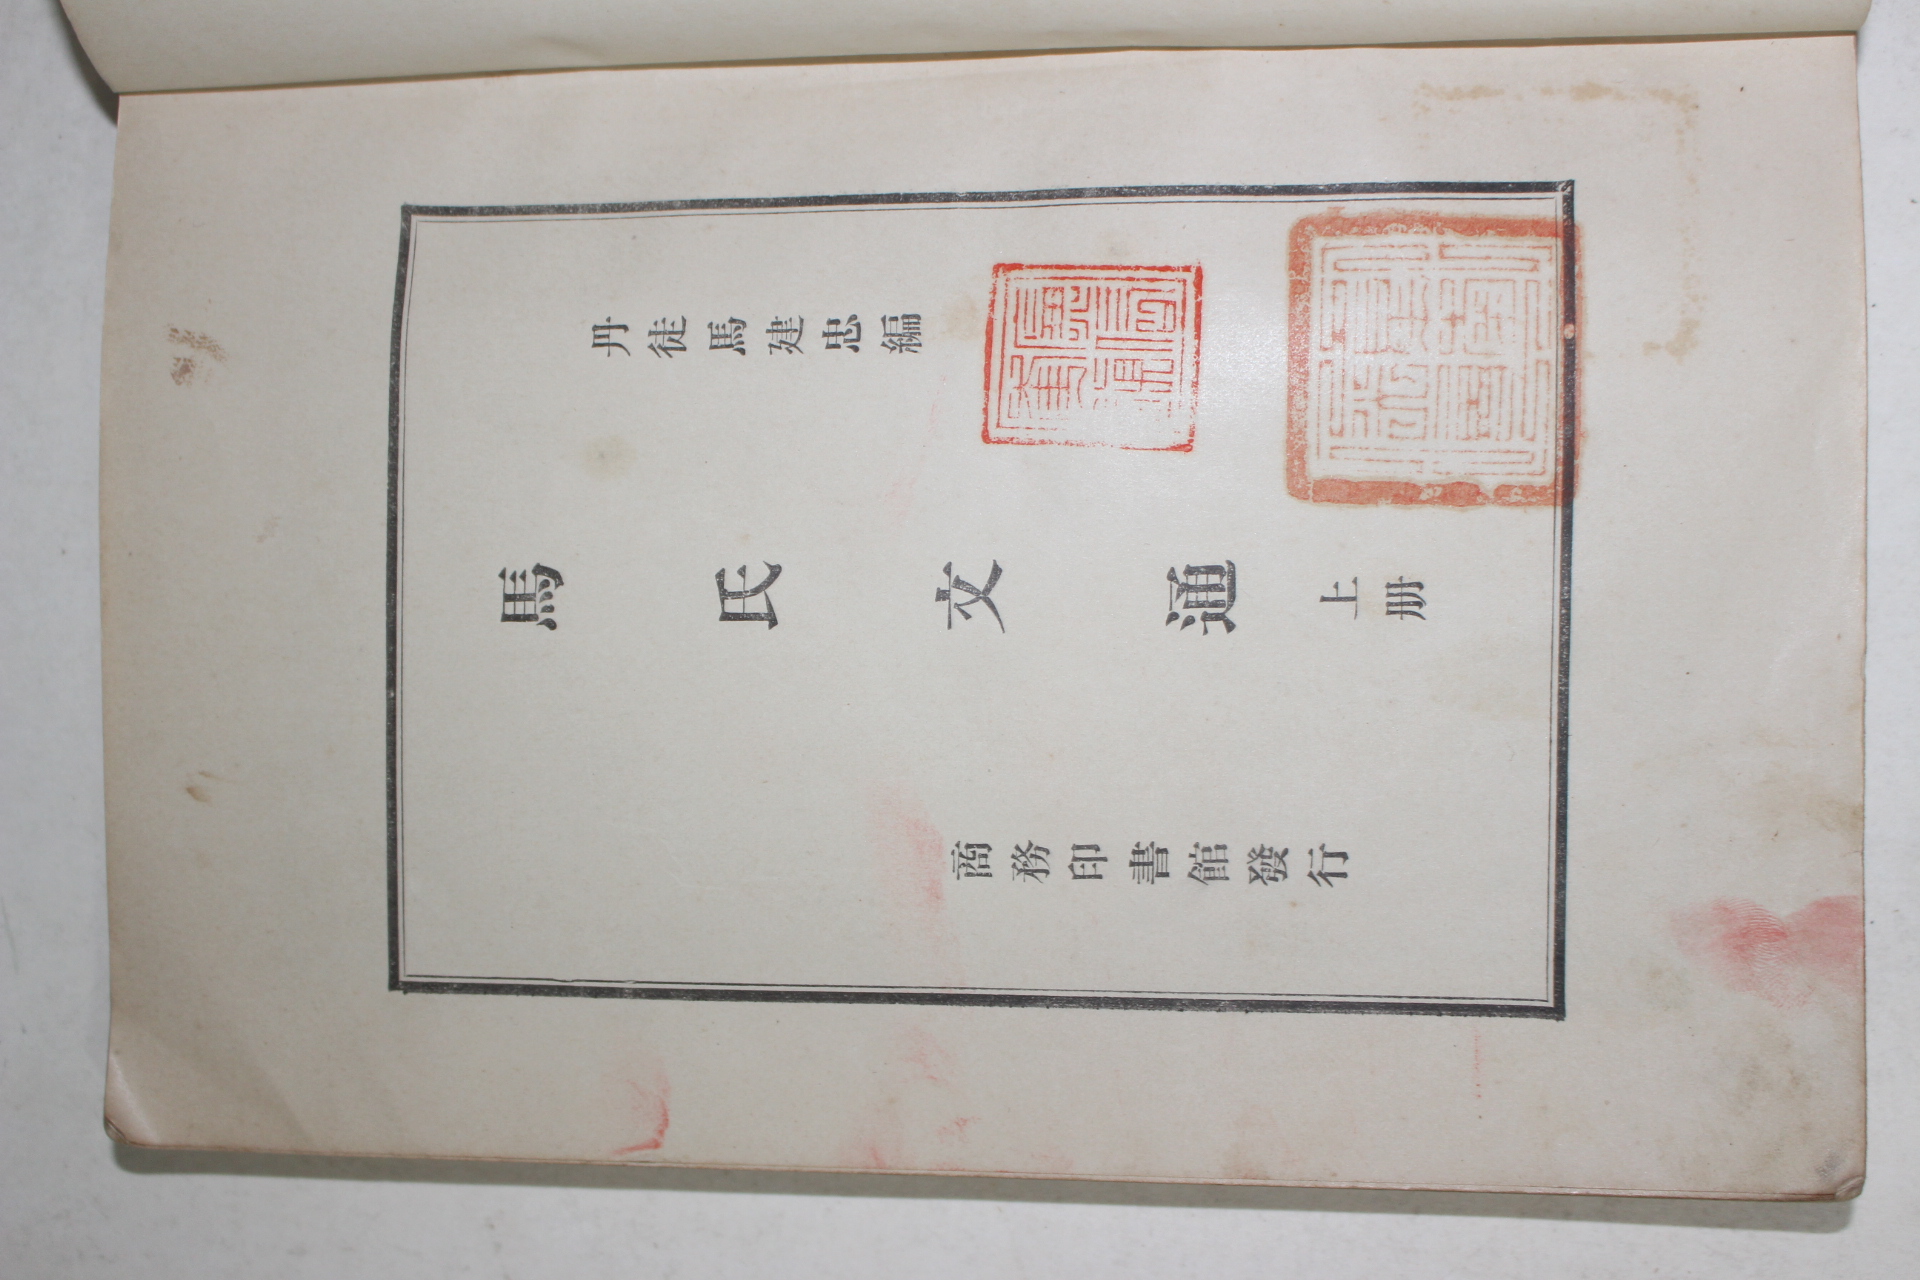 丹徒馬建忠編
馬氏文通上册
商務印書館發行